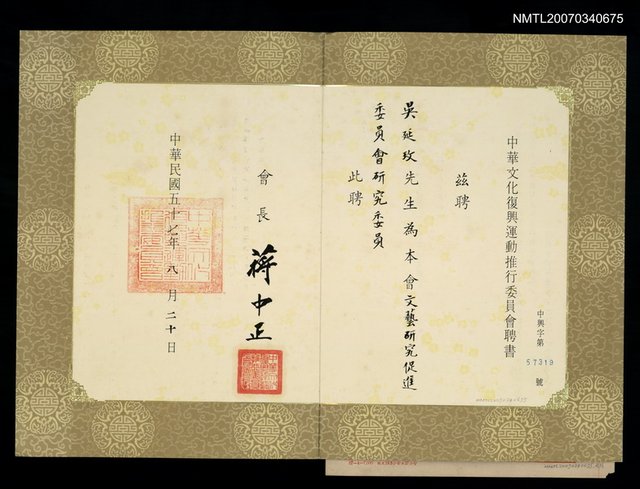 NMTL20070340675
中華文化復興運動推行委員會聘書
中興字第 57319 號
茲聘
吳延玫先生為本會文藝研究促進
委員會研究委員
此聘
會長 蔣中正
中華民國五十七年 八 月 二十 日